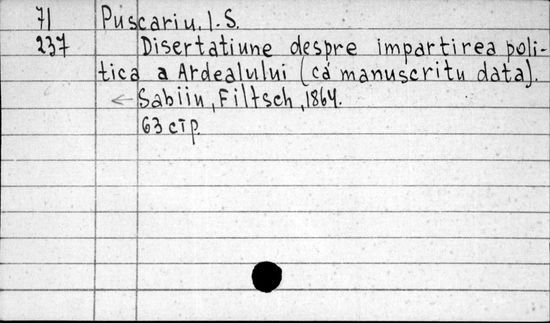 71 Puscariu, I. S.
237 Disertatiune despre impartirea poli-
tica a Ardealului (că manuscritu data).
← Sabiiu, Filtsch, 1864.
63 стр.